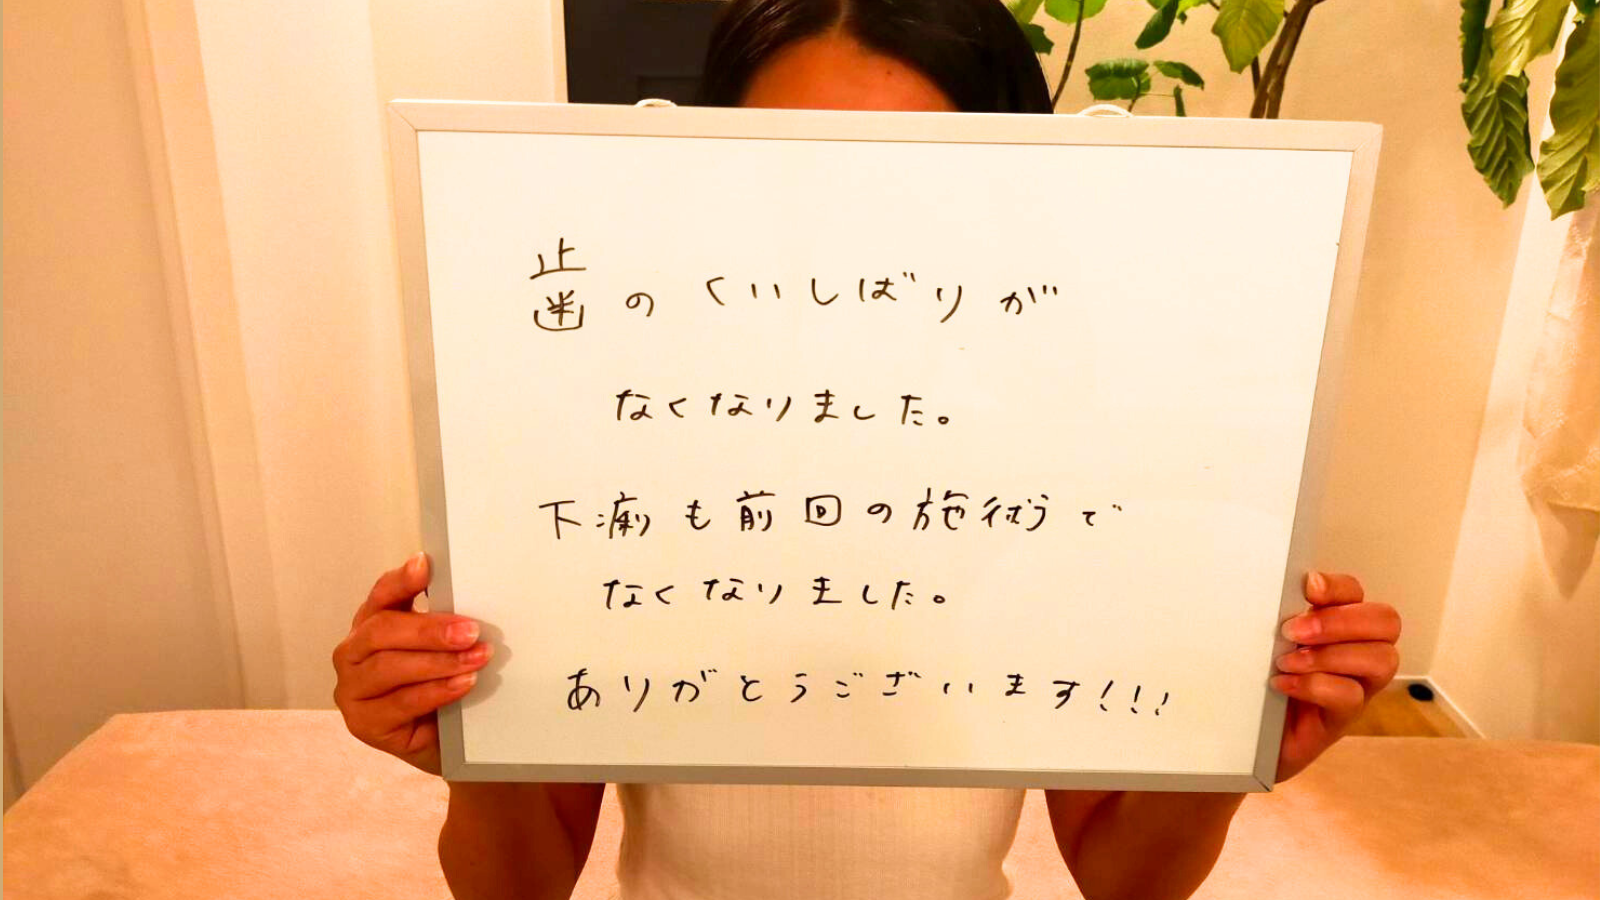 歯のくいしばりが
なくなりました。
下痢も前回の施術で
なくなりました。
ありがとうございます!!!